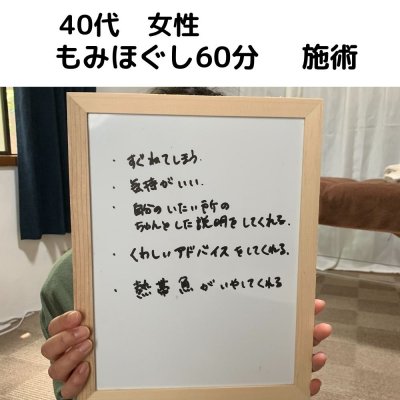 40代 女性
もみほぐし60分 施術
・すぐねてしまう.
・気持がいい.
・自分のいたい所の
ちゃんとした説明をしてくれる.
・くわしいアドバイスをしてくれる.
・熱帯魚がいやしてくれる